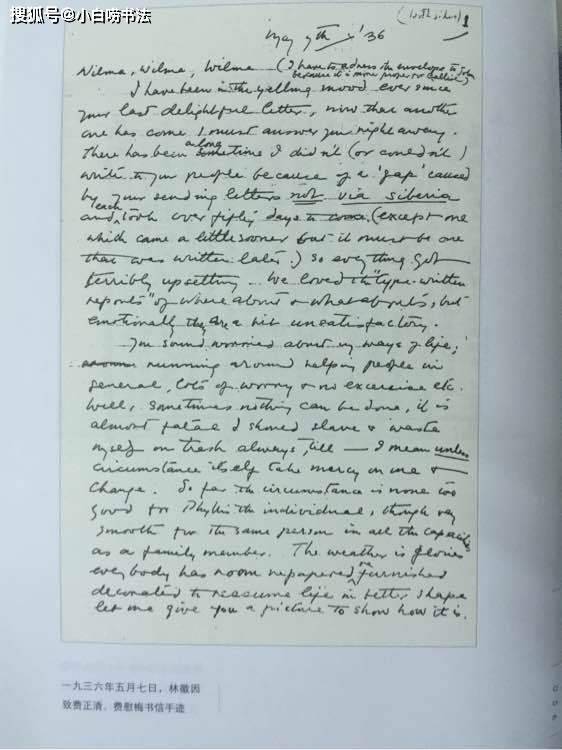 搜狐号@小白唠书法
(both sides) 1
May 7th '36
Wilma, Wilma, Wilma (I have to adress the envelope to John
because it is more proper or
I have been in the yelling mood ever since
your last delightful letter, now that another
one has come I must answer you right away.
There has been a long time I didn't (or couldn't)
write to you people because of a 'gap' caused
by your sending letters not via Siberia
and each took over fifty days to come (except one
which came a little sooner but it must be one
that was written later.) So everything got
terribly upsetting... We loved the "type-written
reports" of where abouts or what abouts, but
emotionally they are a bit unsatisfactory.
You sound worried about my ways of life;
running around helping people in
general, lots of worry or no excercise etc.
Well, sometimes nothing can be done, it is
almost fatal I should slave & waste
myself on trash always, till — I mean unless
circumstance itself take mercy on me &
change. So far the circumstance is none too
good for Phyllis the individual, though very
smooth for the same person in all the capacity
as a family member. The weather is glorious
everybody has room repapered, refurnished
decorated to reassume life in better shape
let me give you a picture to show how it is.
一九三六年五月七日，林徽因
致费正清、费慰梅书信手迹